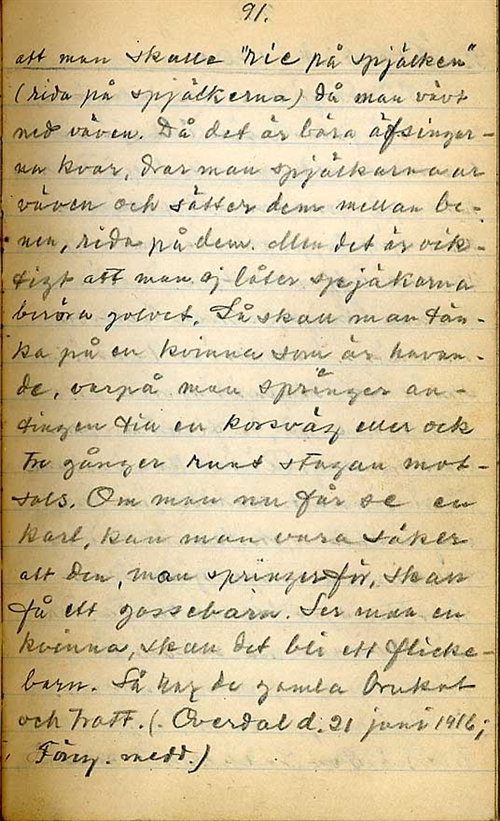 91.
att man skulle "rie på spjälken"
(rida på spjälkerna) då man vävt
ned väven. Då det är bara äfsingar-
na kvar, drar man spjälkarna ur
väven och sätter dem mellan be-
nen, rida på dem. Men det är vik-
tigt att man ej låter spjäkarna
beröra golvet. Så skall man tän-
ka på en kvinna som är havan-
de, varpå man springer an-
tingen till en korsväg eller ock
tre gånger runt stugan mot-
sols. Om man nu får se en
karl, kan man vara säker
att den, man springer för, skall
få ett gossebarn. Ser man en
kvinna, skall det bli ett flicke-
barn. Så har de gamla brukat
och trott. (. Överdal d. 21 juni 1916;
Förg. medd.)